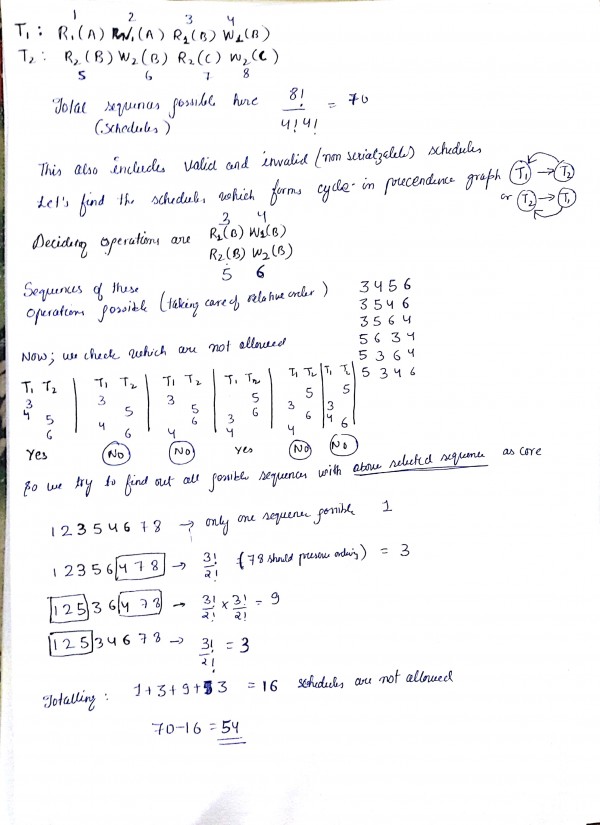 1 2 3 4
T1 : R1(A) W1(A) R1(B) W1(B)
T2 : R2(B) W2(B) R2(C) W2(C)
5 6 7 8
Total sequences possible here 8!/4!4! = 70
(Schedules)
This also includes valid and invalid (non serializable) schedules
Let's find the schedules which forms cycle in precendence graph (T1) → (T2)
or (T2) → (T1)
3 4
Deciding operations are R1(B) W1(B)
R2(B) W2(B)
5 6
Sequences of these
operations possible (taking care of relative order)
3 4 5 6
3 5 4 6
3 5 6 4
5 6 3 4
5 3 6 4
5 3 4 6
Now; we check which are not allowed
T1 T2 | T1 T2 | T1 T2 | T1 T2 | T1 T2 | T1 T2
3 | 3 | 3 | 5 | 5 | 5
4 5 | 5 | 5 | 3 6 | 3 | 3
6 | 4 6 | 4 6 | 4 | 4 6 | 4 6
Yes (No) (No) Yes (No) (No)
So we try to find out all possible sequences with above selected sequence as core
1 2 3 5 4 6 7 8 → only one sequence possible 1
1 2 3 5 6 4 7 8 → 3!/2! (78 should preserve ordering) = 3
1 2 5 3 6 4 7 8 → 3!/2! × 3!/2! = 9
1 2 5 3 4 6 7 8 → 3!/2! = 3
Totalling : 1+3+9+3 = 16 schedules are not allowed
70-16 = 54